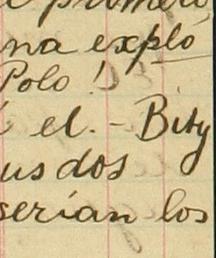 e primero,
na expló
Polo!
é el. - Bity
us dos
serían los